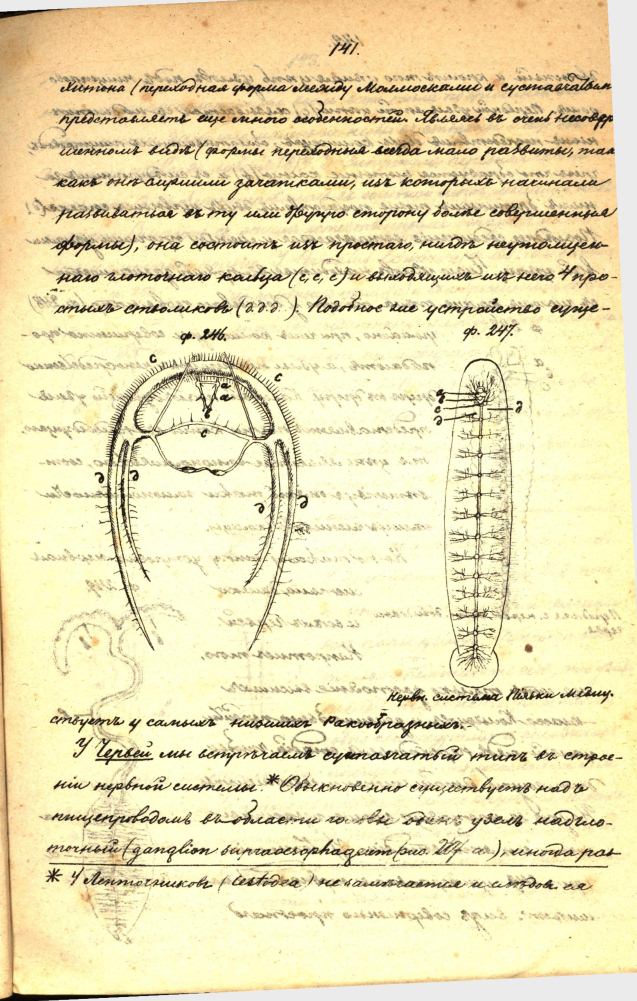 141.
Хитона (переходная форма между Моллюсками и суставчатыми
представляетъ еще много особенностей. Являясь въ очень несовер
шенномъ видѣ (формы переходныя всегда мало развиты, так
какъ онѣ служили зачатками, изъ которыхъ начинали
развиваться въ ту или другую сторону болѣе совершенныя
формы), она состоитъ изъ простаго, нигдѣ неутолщен-
наго глоточнаго кольца (с, с, с) и выходящихъ изъ него 4 про-
стыхъ стволиковъ (д.д.д.). Подобное же устройство суще-
ф. 246.
ф. 247.
c
c
a
a
c
Нервн. система Піявки Медиц.
ствуетъ у самыхъ низшихъ Ракообразныхъ.
У Червей мы встрѣчаемъ суставчатый типъ въ строе-
ніи нервной системы.* Обыкновенно существуетъ надъ
пищепроводомъ въ области головы одинъ узелъ надгло-
точный (ganglion supraoesophageum (рис. 247 а.), иногда раз
* У Ленточниковъ (Cestodea) не замѣчается и слѣдов ея